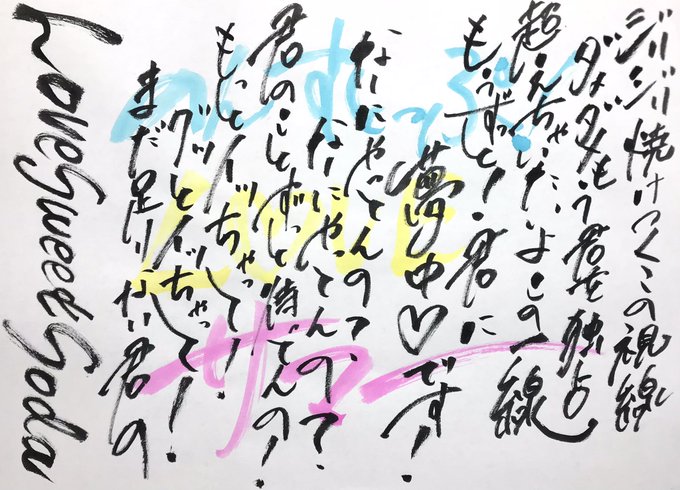 ジリジリ焼けつくこの視線
ダメダメもう君を独占
超えちゃいたいよこの一線
もうずっと!君に
夢中♡です!
なーにやってんのって、
なーにやってんのって、
君のことずっと待ってんの!
もっと
グッと
まだ足りない君の
Love Sweet Soda
LOVE
サマー